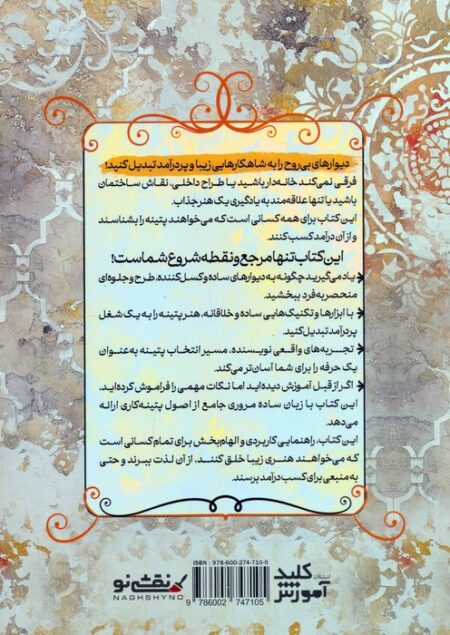 دیوارهای بی‌روح را به شاهکارهایی زیبا و پردرآمد تبدیل کنید!
فرقی نمی‌کند خانه‌دار باشید یا طراح داخلی، نقاش ساختمان
باشید یا تنها علاقه‌مند به یادگیری یک هنر جذاب.
این کتاب برای همه کسانی است که می‌خواهند پتینه را بشناسند
و از آن درآمد کسب کنند.
این کتاب تنها مرجع و نقطه شروع شماست!
یاد می‌گیرید چگونه به دیوارهای ساده و کسل‌کننده، طرح و جلوه‌ای
منحصر به فرد ببخشید.
با ابزارها و تکنیک‌هایی ساده و خلاقانه، هنر پتینه را به یک شغل
پردرآمد تبدیل کنید.
تجربه‌های واقعی نویسنده، مسیر انتخاب پتینه به‌عنوان
یک حرفه را برای شما آسان‌تر می‌کند.
اگر از قبل آموزش دیده‌اید اما نکات مهمی را فراموش کرده‌اید،
این کتاب با زبان ساده مروری جامع از اصول پتینه‌کاری ارائه
می‌دهد.
این کتاب، راهنمایی کاربردی و الهام‌بخش برای تمام کسانی است
که می‌خواهند هنری زیبا خلق کنند، از آن لذت ببرند و حتی به
منبعی برای کسب درآمد برسند.
انتشارات
کلید
آموزش
ISBN: 978-600-274-710-5
9 786002 747105
نقش نو
NAGHSHYNO